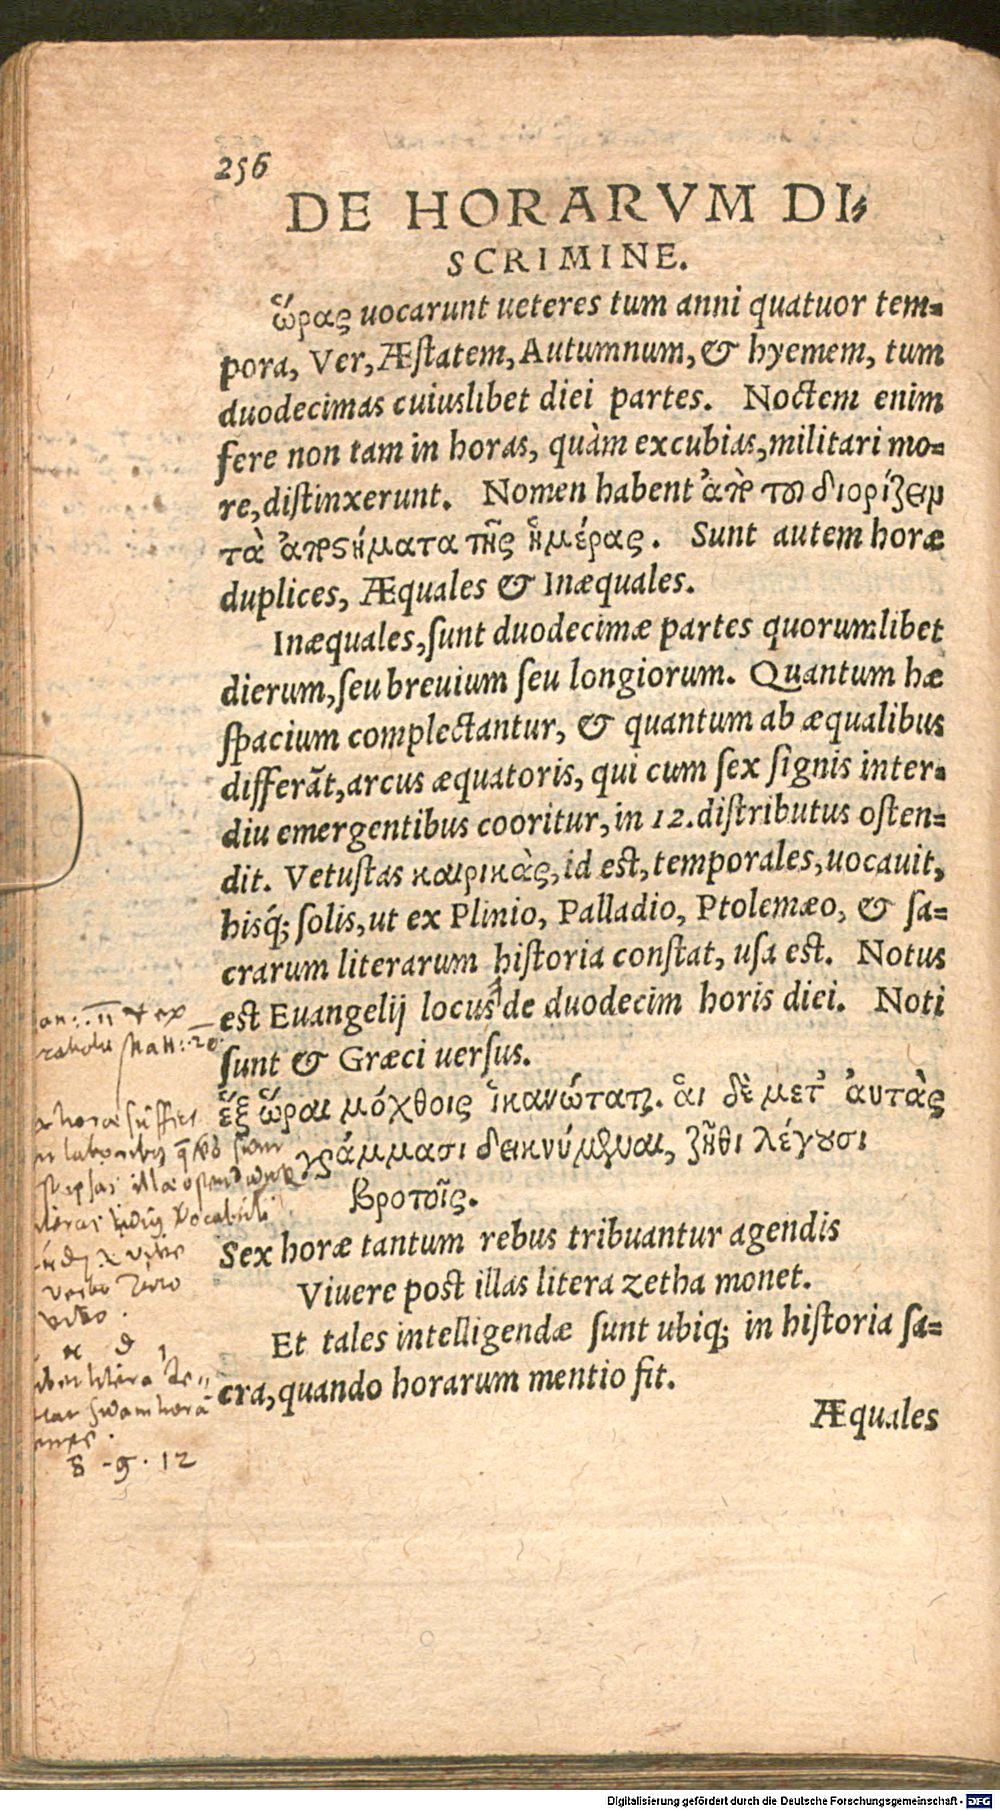 256
DE HORARVM DI-
SCRIMINE.
ὥρας uocarunt ueteres tum anni quatuor tem-
pora, Ver, Æstatem, Autumnum, & hyemem, tum
duodecimas cuiuslibet diei partes. Noctem enim
fere non tam in horas, quàm excubias, militari mo-
re, distinxerunt. Nomen habent ἀπὸ τοῦ διορίζειν
τὰ διαστήματα τῆς ἡμέρας. Sunt autem horæ
duplices, Æquales & Inæquales.
Inæquales, sunt duodecimæ partes quorumlibet
dierum, seu breuium seu longiorum. Quantum hæ
spacium complectantur, & quantum ab æqualibus
differãt, arcus æquatoris, qui cum sex signis inter-
diu emergentibus cooritur, in 12. distributus osten-
dit. Vetustas καιρικὰς, id est, temporales, uocauit,
hisq́; solis, ut ex Plinio, Palladio, Ptolemæo, & sa-
crarum literarum historia constat, usa est. Notus
est Euangelij locus de duodecim horis diei. Noti
sunt & Græci uersus.
ἓξ ὧραι μόχθοις ἱκανώταται. αἱ δὲ μετ' αὐτὰς
γράμμασι δεικνύμεναι, ζῆθι λέγουσι
βροτοῖς.
Sex horæ tantum rebus tribuantur agendis
Viuere post illas litera zetha monet.
Et tales intelligendæ sunt ubiq; in historia sa-
cra, quando horarum mentio fit.
Æquales
8 - 9 · 12
Digitalisierung gefördert durch die Deutsche Forschungsgemeinschaft - DFG